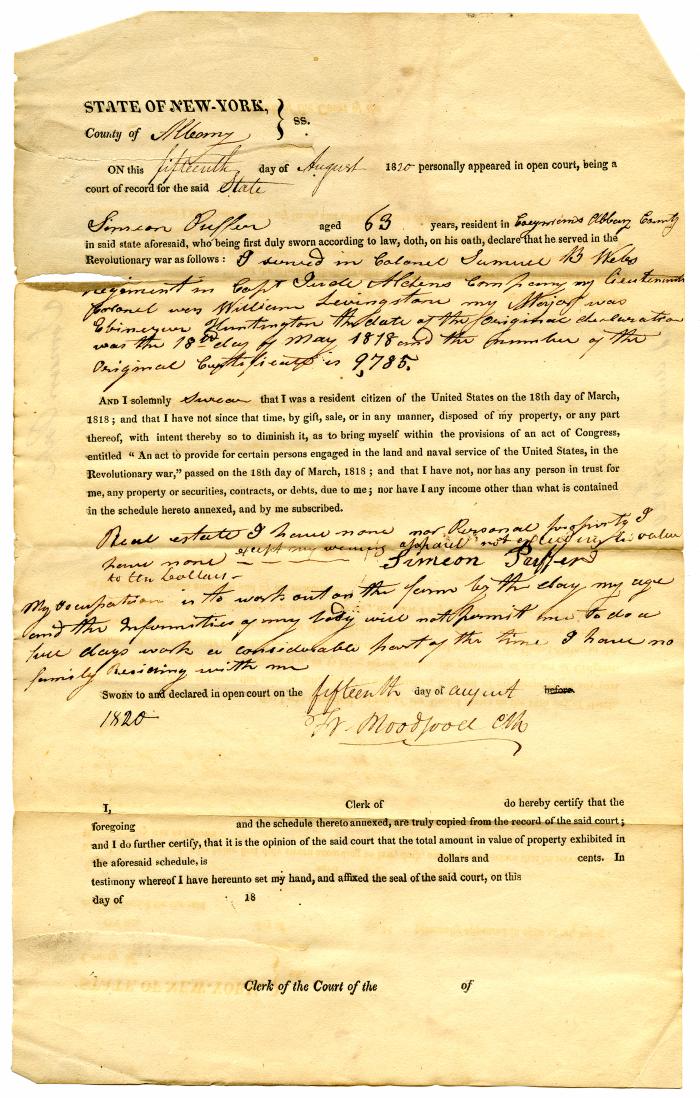 STATE OF NEW-YORK, } ss.
County of Albany
ON this fifteenth day of August 1820 personally appeared in open court, being a
court of record for the said State
Simeon Puffer aged 63 years, resident in Coeymans Albany County
in said state aforesaid, who being first duly sworn according to law, doth, on his oath, declare that he served in the
Revolutionary war as follows: I served in Colonel Samuel B Webs
regiment in Capt Judh Aldens Company my lieutenant
Coronel was William Levingston my Major was
Ebinezer Huntington the date of the Original declaration
was the 18th day of May 1818 and the number of the
Original Certificate is 9,785.
AND I solemnly swear that I was a resident citizen of the United States on the 18th day of March,
1818; and that I have not since that time, by gift, sale, or in any manner, disposed of my property, or any part
thereof, with intent thereby so to diminish it, as to bring myself within the provisions of an act of Congress,
entitled “ An act to provide for certain persons engaged in the land and naval service of the United States, in the
Revolutionary war,” passed on the 18th day of March, 1818; and that I have not, nor has any person in trust for
me, any property or securities, contracts, or debts, due to me; nor have I any income other than what is contained
in the schedule hereto annexed, and by me subscribed.
Real estate I have none nor Personal property I
have none except my wearing apparel not exceeding in value
to ten Dollars - Simeon Puffer
My occupation is to work out on the farm by the day my age
and the Infirmities of my body will not permit me to do a
full days work a considerable part of the time I have no
family Residing with me
SWORN to and declared in open court on the fifteenth day of august before
1820
Clk
I, Clerk of do hereby certify that the
foregoing and the schedule thereto annexed, are truly copied from the record of the said court;
and I do further certify, that it is the opinion of the said court that the total amount in value of property exhibited in
the aforesaid schedule, is dollars and cents. In
testimony whereof I have hereunto set my hand, and affixed the seal of the said court, on this
day of 18
Clerk of the Court of the of